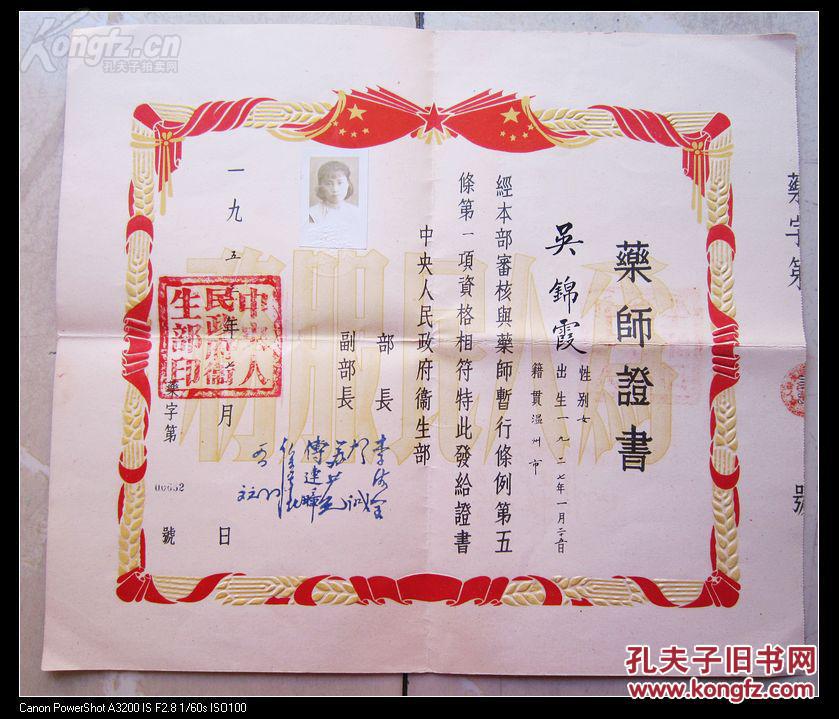 Kongfz.cn
孔夫子拍卖网
藥字第
號
藥師證書
吳錦霞
性別女
出生一九二七年一月二五日
籍貫溫州市
經本部審核與藥師暫行條例第五
條第一項資格相符特此發給證書
中央人民政府衞生部
部長
副部長
李德全
傅連暲
一九五
年
月
日
中央人
民政府衞
生部印
藥字第
00652
號
为人民服務
孔夫子旧书网
www.kongfz.com
Canon PowerShot A3200 IS F2.8 1/60s ISO100